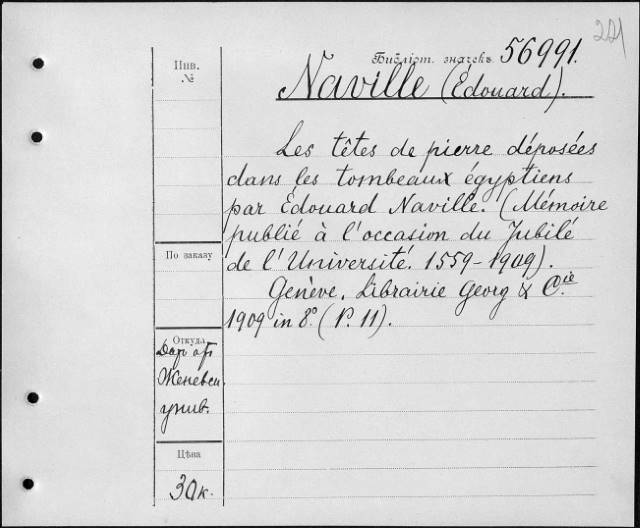 221
Библіот. значекъ 56991.
Инв.
№
Naville (Edouard).
Les têtes de pierre déposées
dans les tombeaux égyptiens
par Edouard Naville. (Mémoire
publié à l'occasion du Jubilé
de l'Université. 1559-1909).
Genève. Librairie Georg & Cie.
1909 in 8º. (P. 11).
По заказу
Откуда
Дар от
Женевск.
унив.
Цѣна
30 к.